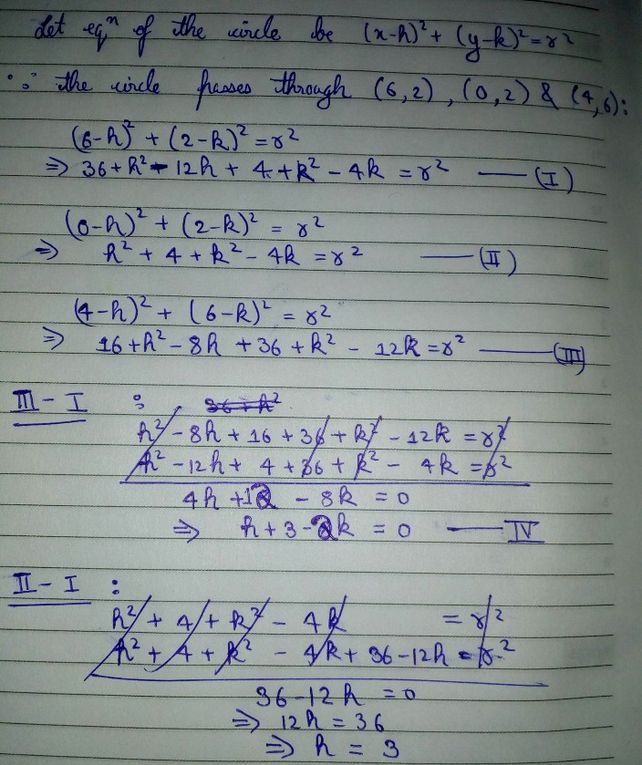 Let eqⁿ of the circle be (x-h)² + (y-k)² = r²
∵ the circle passes through (6,2), (0,2) & (4,6):
(6-h)² + (2-k)² = r²
⇒ 36 + h² - 12h + 4 + k² - 4k = r² —— (I)
(0-h)² + (2-k)² = r²
⇒ h² + 4 + k² - 4k = r² —— (II)
(4-h)² + (6-k)² = r²
⇒ 16 + h² - 8h + 36 + k² - 12k = r² —— (III)
III - I : 36 + h²
h² - 8h + 16 + 36 + k² - 12k = r²
h² - 12h + 4 + 36 + k² - 4k = r²
4h + 12 - 8k = 0
⇒ h + 3 - 2k = 0 —— IV
II - I :
h² + 4 + k² - 4k = r²
h² + 4 + k² - 4k + 36 - 12h = r²
36 - 12h = 0
⇒ 12h = 36
⇒ h = 3